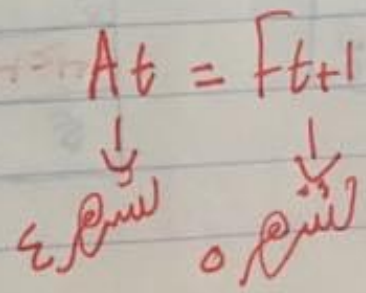 At = Ft+1
شهر ٥ شهر ٤